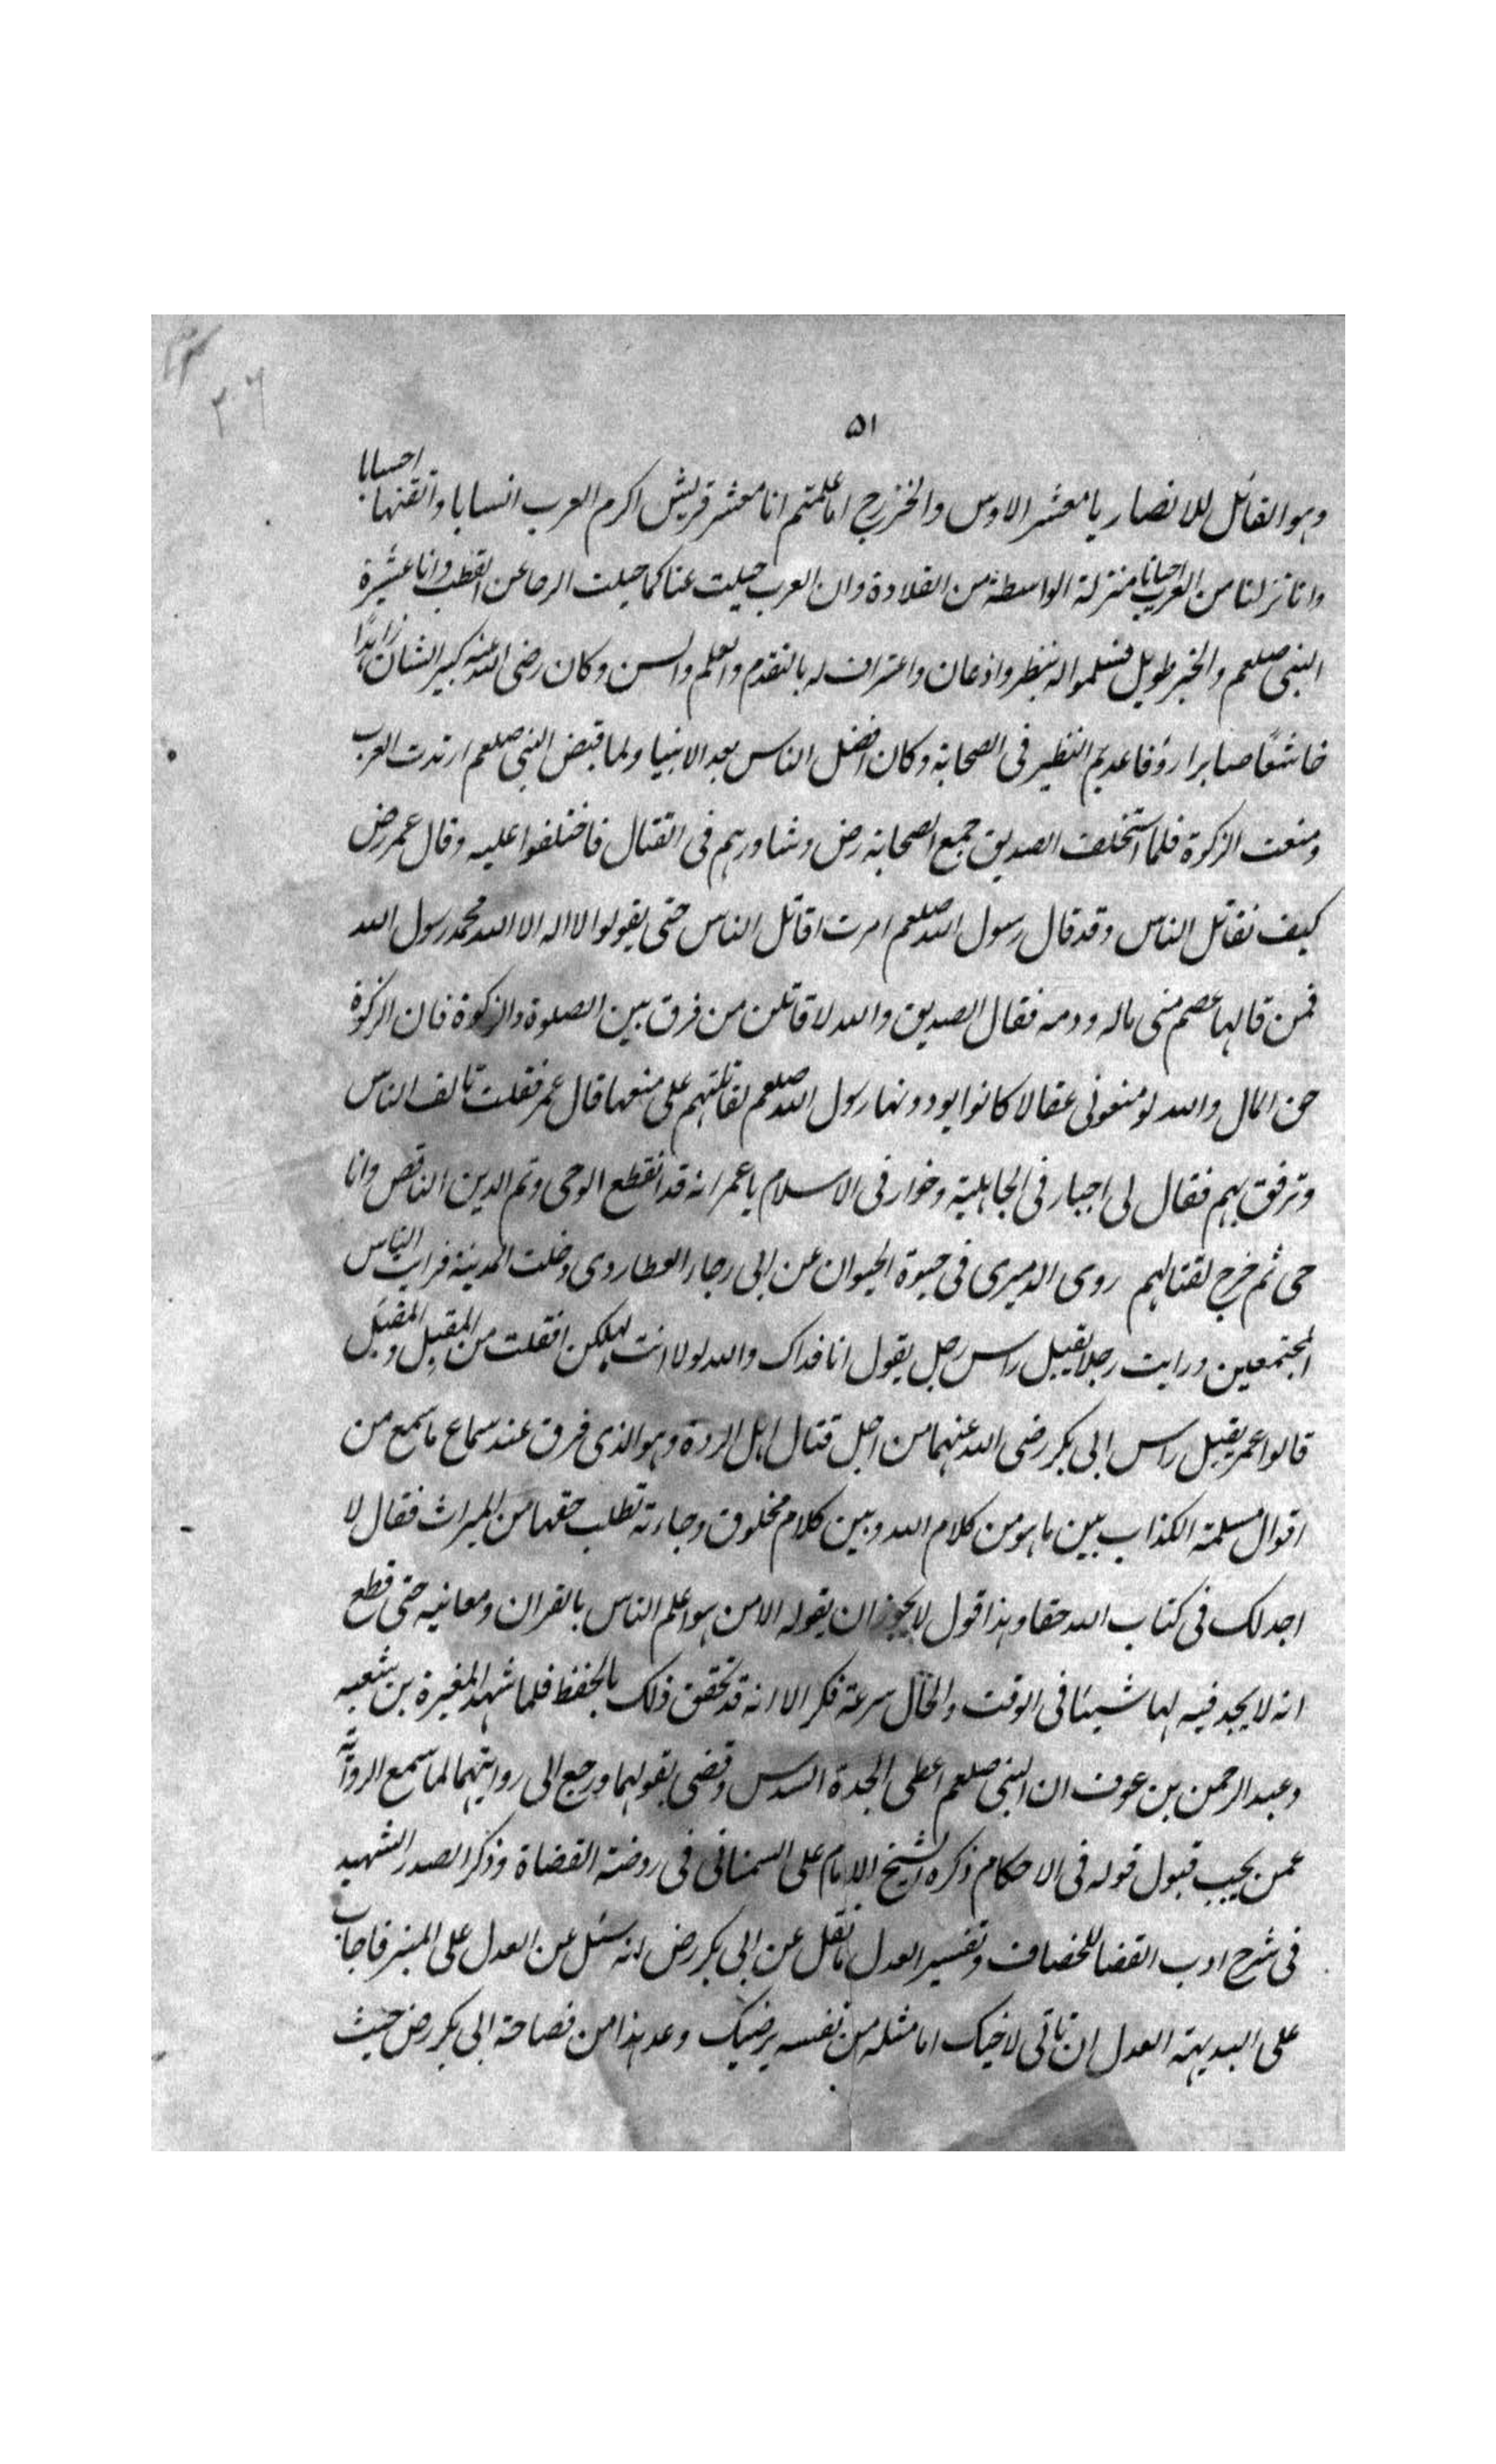 ٢٠٦
٥١
وهو القائل للانصار يا معشر الاوس والخزرج اما علمتم انا معشر قريش اكرم العرب انسابا واتقنها احسابا
وانا نزلنا من العرب احيانا منزلة الواسطة من القلادة وان العرب جيلت عنا كما جيلت الرحا عن القطب وانا عشيرة
النبى صلعم والخبر طويل فسلموا له بنظر واذعان واعتراف له بالتقدم والعلم والسن وكان رضى الله عنه كبير الشان زاهدًا
خاشعًا صابرا رؤفا عديم النظير فى الصحابة وكان افضل الناس بعد الانبيا ولما قبض النبى صلعم ارتدت العرب
ومنعت الزكوة فلما استخلف الصديق جمع الصحابة رض وشاورهم فى القتال فاختلفوا عليه وقال عمر رض
كيف نقاتل الناس وقد قال رسول الله صلعم امرت اقاتل الناس حتى يقولوا لا اله الا الله محمد رسول الله
فمن قالها عصم منى ماله ودمه فقال الصديق والله لاقاتلن من فرق بين الصلوة والزكوة فان الزكوة
حق المال والله لو منعونى عقالا كانوا يودونها رسول الله صلعم لقاتلتهم على منعها قال عمر فقلت تالف الناس
وترفق بهم فقال لى اجبار فى الجاهلية وخوار فى الاسلام يا عمر انه قد انقطع الوحى وتم الدين الناقص وانا
حى ثم خرج لقتالهم روى الدميرى فى حيوة الحيوان عن ابى رجاء العطاردى دخلت المدينة فرايت الناس
المجتمعين ورايت رجلا يقبل راس رجل يقول انا فداك والله لولا انت لهلكن افقلت من المقبِل والمقبَل
قالوا عمر يقبل راس ابى بكر رضى الله عنهما من اجل قتال اهل الردة وهو الذى فرق عند سماع ما سمع من
اقوال مسلمة الكذاب بين ما هو من كلام الله وبين كلام مخلوق وجاءته تطلب حقها من الميراث فقال لا
اجد لك فى كتاب الله حقا وهذا قول لا يجوز ان يقوله الا من هو اعلم الناس بالقران ومعانيه حتى قطع
انه لا يجد فيه لها شيئا فى الوقت والحال سرعة فكر الا انه قد تحقق ذلك بالحفظ فلما شهد المغيرة بن شعبه
وعبد الرحمن بن عوف ان النبى صلعم اعطى الجدة السدس وقضى بقولهما ورجع الى روايتهما لما سمع الرواية
عمن يجب قبول قوله فى الاحكام ذكره الشيخ الامام على السمنانى فى روضة القضاة وذكر الصدر الشهيد
فى شرح ادب القضا للخصاف وتفسير العدل ما نقل عن ابى بكر رض انه سئل عن العدل على المنبر فاجاب
على البديهة العدل ان تاتى لاخيك اما مثله من نفسه يرضيك وعد هذا من فصاحة ابى بكر رض حيث